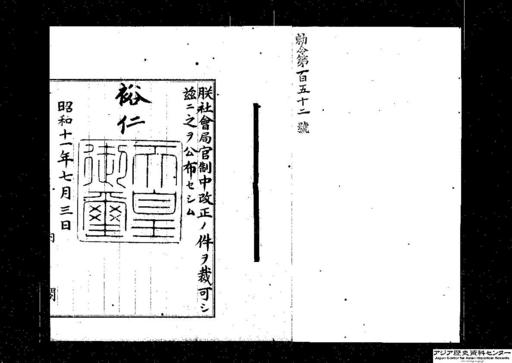 勅令第百五十二號
朕社會局官制中改正ノ件ヲ裁可シ
茲ニ之ヲ公布セシム
裕仁
天皇御璽
昭和十一年七月三日
内閣
アジア歴史資料センター
Japan Center for Asian Historical Records